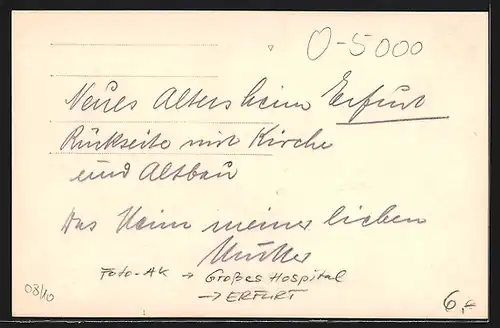 O-5000
Neues Altersheim Erfurt
Rückseite mit Kirche
und Altbau
Das Heim meiner lieben
Mutter
Foto-AK → Großes Hospital
→ ERFURT
08/10
6,-